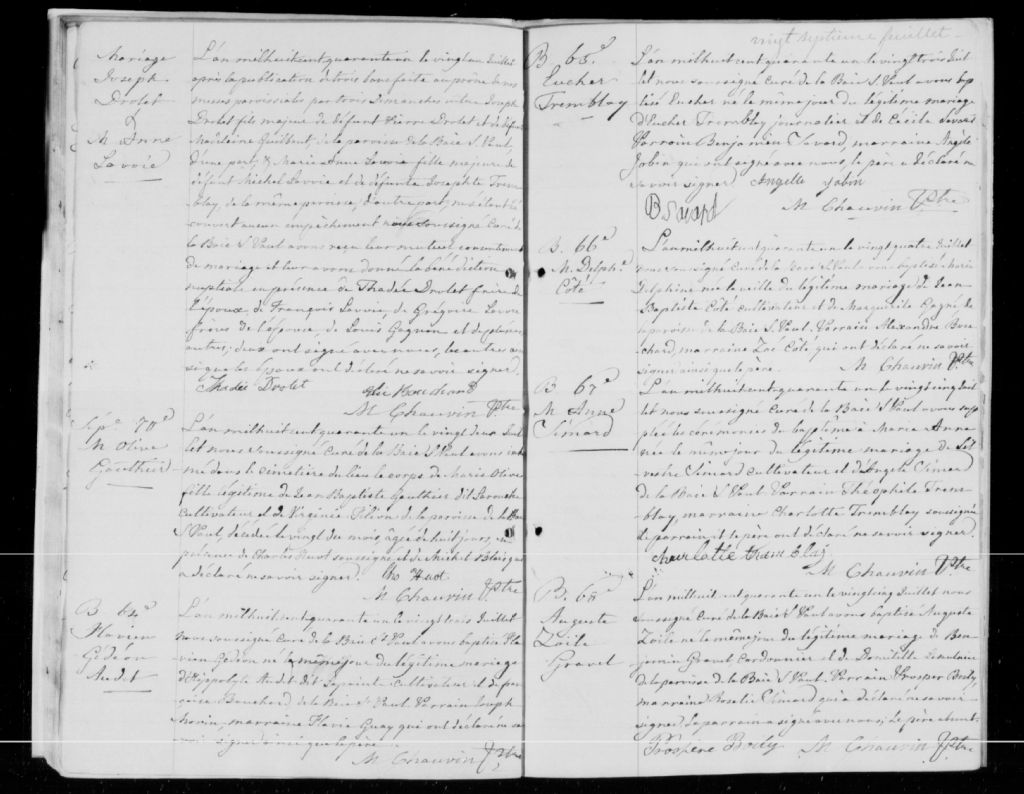 Mariage
Joseph
Drolet
&
M. Anne
Lavoie
L'an mil huit cent quarante un le vingt un Juillet
après la publication de trois bans faite au prône de nos
messes paroissiales par trois Dimanches entre Joseph
Drolet fils majeur de défunt Pierre Drolet et de défunte
Madeleine Guilbeut, de la paroisse de la Baie St Paul,
d'une part, & Marie Anne Lavoie fille majeure de
défunt Michel Lavoie et de défunte Josephte Trem
blay, de la même paroisse, d'autre part, ne s'étant dé
couvert aucun empêchement nous soussigné Curé de
la Baie St Paul avons reçu leur mutuel consentement
de mariage et leur avons donné la bénédiction
nuptiale en présence de Thadée Drolet frère de
l'époux, de François Lavoie, de Grégoire Lavoie
frères de l'épouse, de Louis Gagnon et de plusieurs
autres; deux ont signé avec nous, les autres
ainsi que les époux ont déclaré ne savoir signer.
Thadée Drolet
M Chauvin Ptre
Sépre 70e
M Olive
Gauthier
L'an mil huit cent quarante un le vingt deux Juil
let nous soussigné Curé de la Baie St Paul avons inhu
mé dans le cimetière du lieu le corps de Marie Olive
fille légitime de Jean Baptiste Gauthier dit Larouche
cultivateur et de Virginie de la paroisse de la Baie
St Paul, décédée le vingt du mois, âgée de huit jours, en
présence de Charles Huot soussigné et de Michel
a déclaré ne savoir signer. Chs Huot
M Chauvin Ptre
B 64e
Flavien
Gédéon
Audet
L'an mil huit cent quarante un le vingt trois Juillet
nous soussigné Curé de la Baie St Paul avons baptisé Fla
vien Gédéon né le même jour du légitime mariage
d'Hyppolyte Audet dit Lapointe cultivateur et de Fran
çoise Bouchard de la Baie St Paul. Parrain Joseph
marraine Flavie Guay qui ont déclaré ne sa
voir signer ainsi que le père.
M Chauvin Ptre
vingt septième feuillet
B 65e
Eucher
Tremblay
L'an mil huit cent quarante un le vingt trois Juil
let nous soussigné Curé de la Baie St Paul avons bap
tisé Eucher né le même jour du légitime mariage
d'Eucher Tremblay journalier et de Cécile Savard
Parrain Benjamin Savard, marraine Angèle
Jobin qui ont signé avec nous, le père a déclaré ne
savoir signer. Angelle Jobin
M Chauvin Ptre
B. 66e
M. Delphe
Côté
L'an mil huit cent quarante un le vingt quatre Juillet
nous soussigné Curé de la Baie St Paul avons baptisé Marie
Delphine née la veille du légitime mariage de Jean
Baptiste Côté cultivateur et de Marguerite Gagné de
la paroisse de la Baie St Paul. Parrain Alexandre Bou
chard, marraine Zoé Côté qui ont déclaré ne savoir
signer ainsi que le père. M Chauvin Ptre
B 67e
M Anne
Simard
L'an mil huit cent quarante un le vingt cinq Juil
let nous soussigné Curé de la Baie St Paul avons sup
pléé les cérémonies de baptême à Marie Anne
née le même jour du légitime mariage de
Simard cultivateur et d'Angèle Simard
de la Baie St Paul. Parrain Théophile Trem
blay, marraine Charlotte Tremblay soussignée
le parrain et le père ont déclaré ne savoir signer.
Charlotte trambley
M Chauvin Ptre
B. 68e
Auguste
Zoïle
Gravel
L'an mil huit cent quarante un le vingt cinq Juillet nous
soussigné Curé de la Baie St Paul avons baptisé Auguste
Zoïle né le même jour du légitime mariage de Ben
jamin Gravel Cordonnier et de Domitille
de la paroisse de la Baie St Paul. Parrain Prosper Boily,
marraine Roselie Simard qui a déclaré ne savoir
signer. Le parrain a signé avec nous; le père absent.
Prospère Boily M Chauvin Ptre